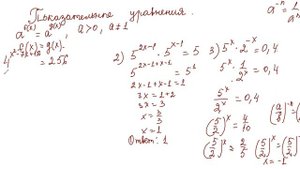 Показательные уравнения.
a^f(x) = a^g(x), a>0, a≠1
f(x) = g(x).
= 256
2) 5^2x-1 · 5^x-1 = 5
5^2x-1+x-1 = 5^1
2x-1+x-1=1
3x = 1+2
3x = 3
x = 3/3
x = 1
Ответ: 1
3) 5^x · 2^-x = 0,4
5^x · 1/2^x = 0,4
5^x/2^x = 0,4
(5/2)^x = 4/10
(5/2)^x = 2/5
x = -1
a^-n = 1/a